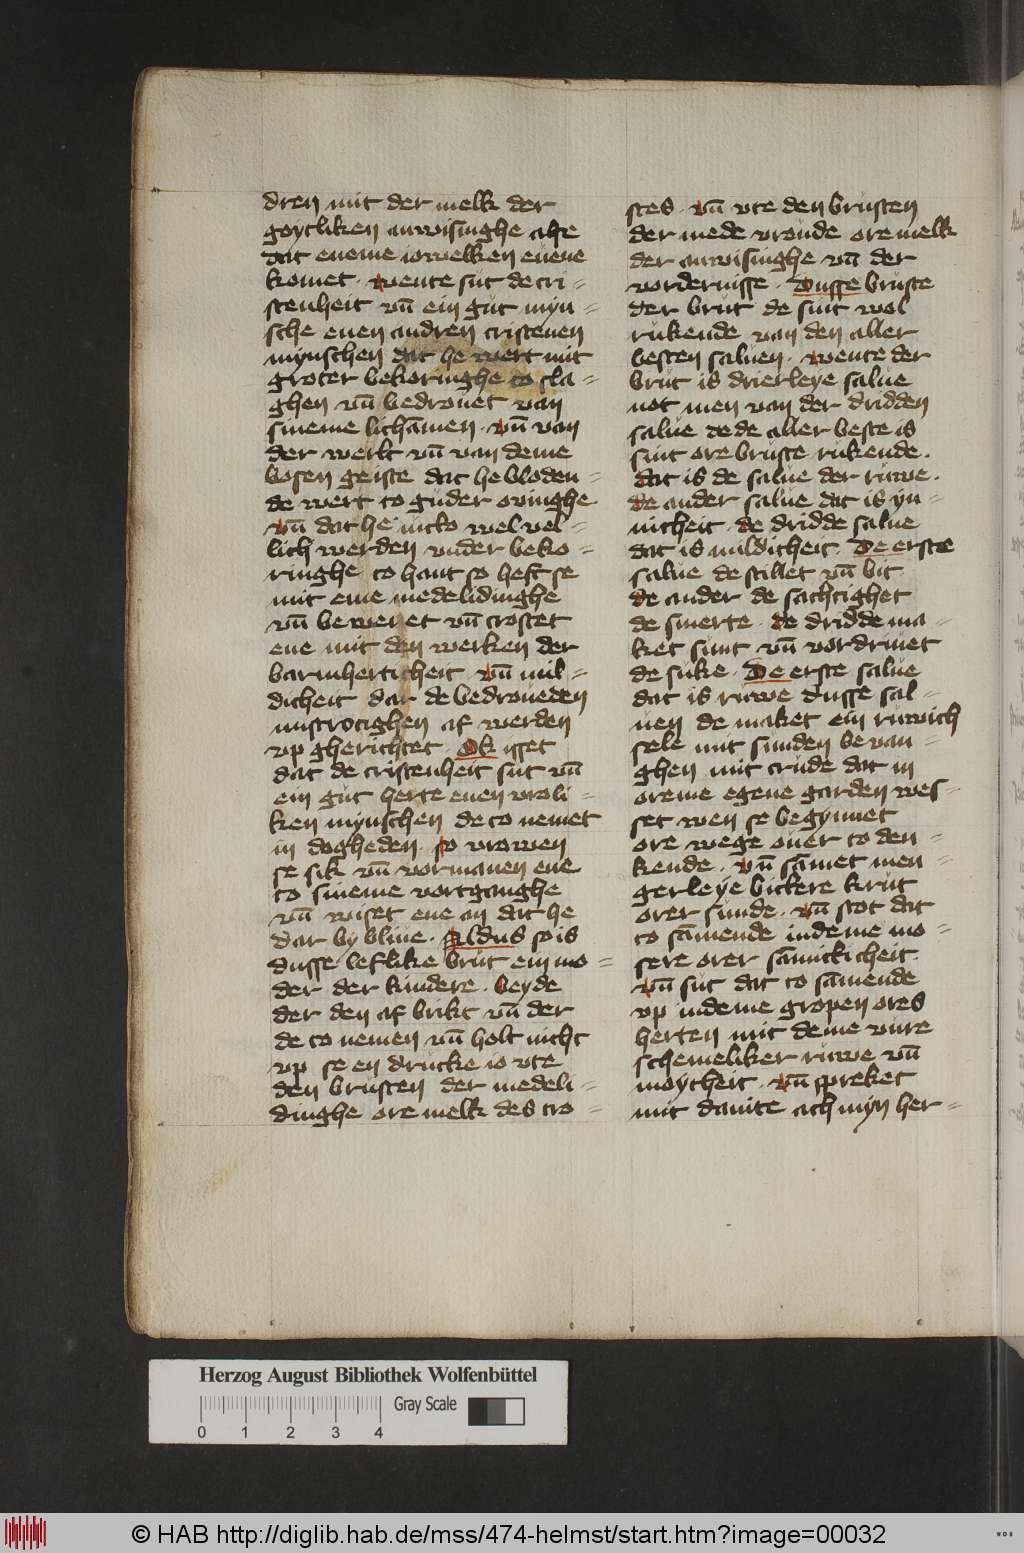 dren mit der melk der
goytliken anwisinghe alse
dat eneme iowelken euene
komet . wente sut de cri=
stenheit vn̄ ein gůt myn=
sche enen andren cristenen
mynschen dat he wert mit
groter bekoringhe to sla=
ghen vn̄ bedrouet van
sineme lichāmen . vn̄ van
der werlt vn̄ van deme
bosen geiste dat he bloden=
de wert to guder ouinghe
vn̄ dat he nicko wel vel=
lich werden vnder beko=
ringhe to hant so heft se
mit eme medelidinghe
vn̄ bewenet vn̄ trostet
ene mit den werken der
barmherticheit . vn̄ mil=
dicheit dar de bedroueden
mistrotighen af werden
vp gherichtet . Ok isset
dat de cristenheit sut vn̄
ein gůt herte enen vroli=
ken mynschen de to nemet
in dogheden . so vrowen
se sik vn̄ vormanen ene
to sineme vortganghe
vn̄ wiset ene an dat he
dar by bliue . Aldus so is
dusse leflike brut ein mo=
der der kindere . beyde
der den af brikt vn̄ der
de to nemen vn̄ holt nicht
vp se en drucke io vte
den brusten der medeli=
dinghe ore melk des tro=
stes . vn̄ vte den brusten
der mede vroude ore melk
der anwisinghe vn̄ der
vordernisse . Dusse bruste
der brut de sint wol
rukende van den aller
besten saluen . wente der
brut is drierleye salue
not men van der dridden
salue de de aller beste is
sint ore bruste rukende .
dat is de salue der ruwe .
de ander salue dat is yn=
nicheit . de dridde salue
dat is mildicheit . De erste
salue de stillet vn̄ bit
de ander de sachtighet
de smerte . de dridde ma=
ket sunt vn̄ vordriuet
de suke . De erste salue
dat is ruwe dusse sal=
uen de maket ein ruwich
sele mit sunden beuan=
ghen mit crude dat in
oreme egene garden wes=
set wen se begynnet
ore wege ouer to den=
kende . vn̄ sāmet men=
gerleye bickere krut
orer sunde . vn̄ stot dat
to sāmende indeme mo=
sere orer sāmitticheit
vn̄ sut dat to sāmende
vp indeme gropen ores
herten mit deme vure
schemeliker ruwe vn̄
moytheit . vn̄ spreket
mit dauite ach myn her=
Herzog August Bibliothek Wolfenbüttel
Gray Scale
0 1 2 3 4
© HAB http://diglib.hab.de/mss/474-helmst/start.htm?image=00032